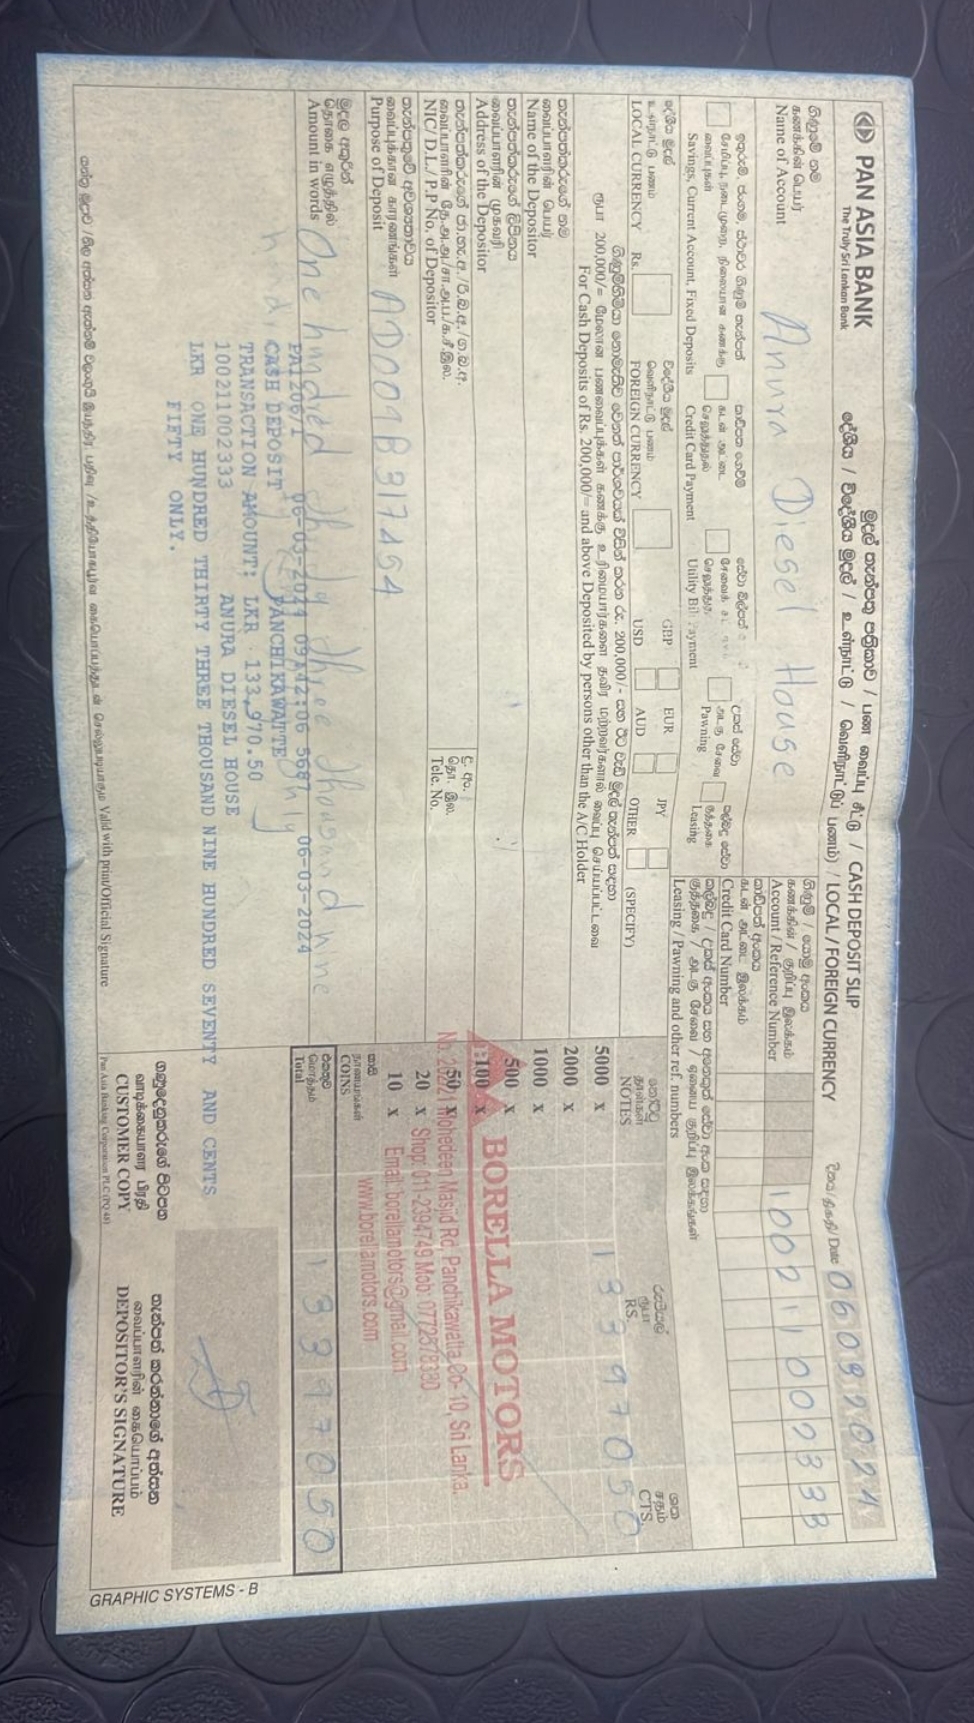 PAN ASIA BANK
The Truly Sri Lankan Bank
මුදල් තැන්පතු පත්‍රිකාව / பண வைப்பு சீட்டு / CASH DEPOSIT SLIP
දේශීය / විදේශීය මුදල් / உள்நாட்டு / வெளிநாட்டுப் பணம்) / LOCAL / FOREIGN CURRENCY
දිනය/திகதி/ Date 06032024
ගිණුමේ නම
கணக்கின் பெயர்
Name of Account
Anura Diesel House
ගිණුම් / යොමු අංකය
கணக்கின் / குறிப்பு இலக்கம்
Account / Reference Number
100211002333
කාඩ්පත් අංකය
கடன் அட்டை இலக்கம்
Credit Card Number
Savings, Current Account, Fixed Deposits
Credit Card Payment
Utility Bill Payment
Pawning
Leasing
Leasing / Pawning and other ref. numbers
දේශීය මුදල්
உள்நாட்டு பணம்
LOCAL CURRENCY Rs.
විදේශීය මුදල්
வெளிநாட்டு பணம்
FOREIGN CURRENCY
GBP EUR JPY
USD AUD OTHER (SPECIFY)
For Cash Deposits of Rs. 200,000/= and above Deposited by persons other than the A/C Holder
තැන්පත්කරුගේ නම
வைப்பாளரின் பெயர்
Name of the Depositor
තැන්පත්කරුගේ ලිපිනය
வைப்பாளரின் முகவரி
Address of the Depositor
NIC/ D.L./ P.P No. of Depositor
දු. අං.
தொ. இல.
Tele. No.
තැන්පතුවේ අවශ්‍යතාවය
வைப்புக்கான காரணங்கள்
Purpose of Deposit
AD009B317464
මුදල අකුරින්
தொகை எழுத்தில்
Amount in words
One hundred thirty three thousand nine
PA120671 06-03-2024 09:42:06 5687 06-03-2024
CASH DEPOSIT PANCHIKAWATTE
TRANSACTION AMOUNT: LKR 133,970.50
100211002333 ANURA DIESEL HOUSE
LKR ONE HUNDRED THIRTY THREE THOUSAND NINE HUNDRED SEVENTY AND CENTS
FIFTY ONLY.
Valid with print/Official Signature
නෝට්ටු
தாள்கள்
NOTES
රුපියල්
ரூபா
RS.
ශත
சதம்
CTS.
5000 x 133970 50
2000 x
1000 x
500 x
100 x
50 x
20 x
10 x
කාසි
நாணயங்கள்
COINS
එකතුව
மொத்தம்
Total
133970 50
BORELLA MOTORS
Mohedeen Masjid Rd, Panchikawatta, Co-10, Sri Lanka.
Shop: 011-2394749 Mob:
Email: borellamotors@gmail.com
www.borellamotors.com
ගනුදෙනුකරුගේ පිටපත
வாடிக்கையாளர் பிரதி
CUSTOMER COPY
Pan Asia Banking Corporation PLC (PQ 48)
තැන්පත් කරන්නාගේ අත්සන
வைப்பாளரின் கையொப்பம்
DEPOSITOR'S SIGNATURE
GRAPHIC SYSTEMS - B